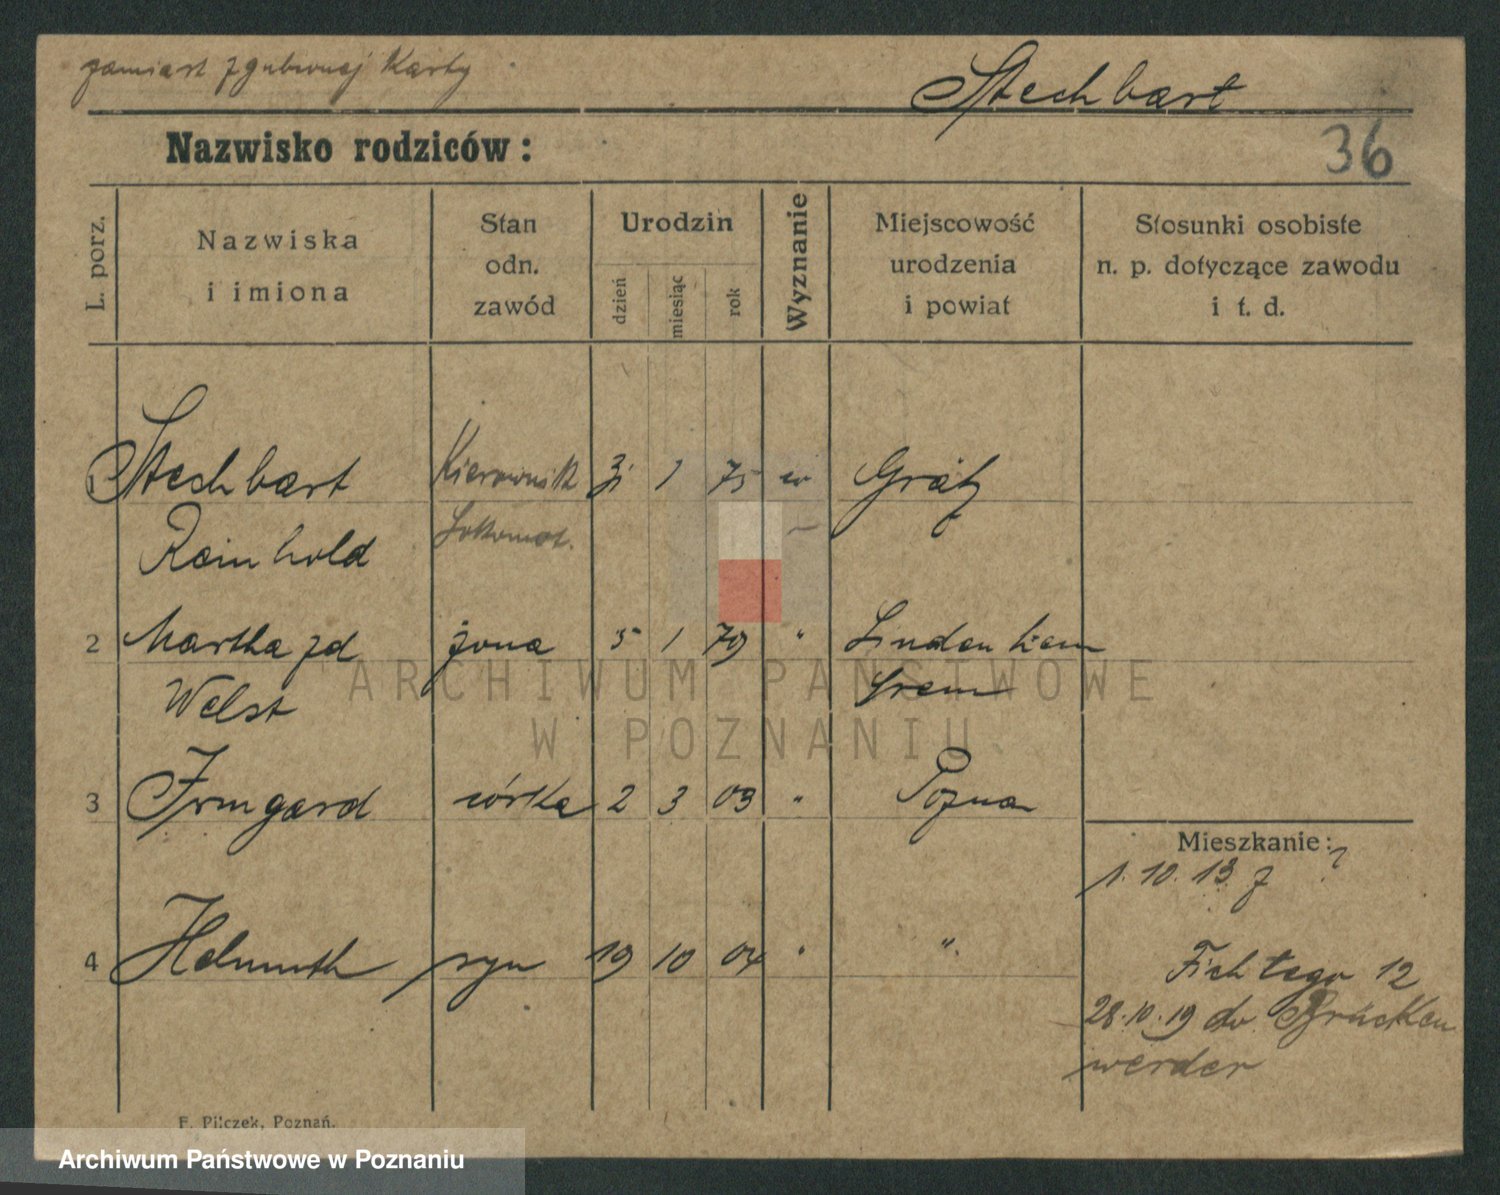 zamiast zgubionej Karty
Stechbart
Nazwisko rodziców:
36
L. porz.
Nazwiska
i imiona
Stan
odn.
zawód
Urodzin
dzień
miesiąc
rok
Wyznanie
Miejscowość
urodzenia
i powiat
Stosunki osobiste
n. p. dotyczące zawodu
i t. d.
1 Stechbart Kierownik 31 1 75 ew Grätz
Reinhold Lokomot.
2 Martha zd żona 5 1 79 " Lindenheim
Welst Srem
3 Irmgard córka 2 3 03 " Pozna
4 Helmuth syn 19 10 04 " "
Mieszkanie:
1. 10. 13 z ?
Fichtego 12
28.10.19 do Brücken
werder
F. Pilczek, Poznań.
ARCHIWUM PAŃSTWOWE
W POZNANIU
Archiwum Państwowe w Poznaniu